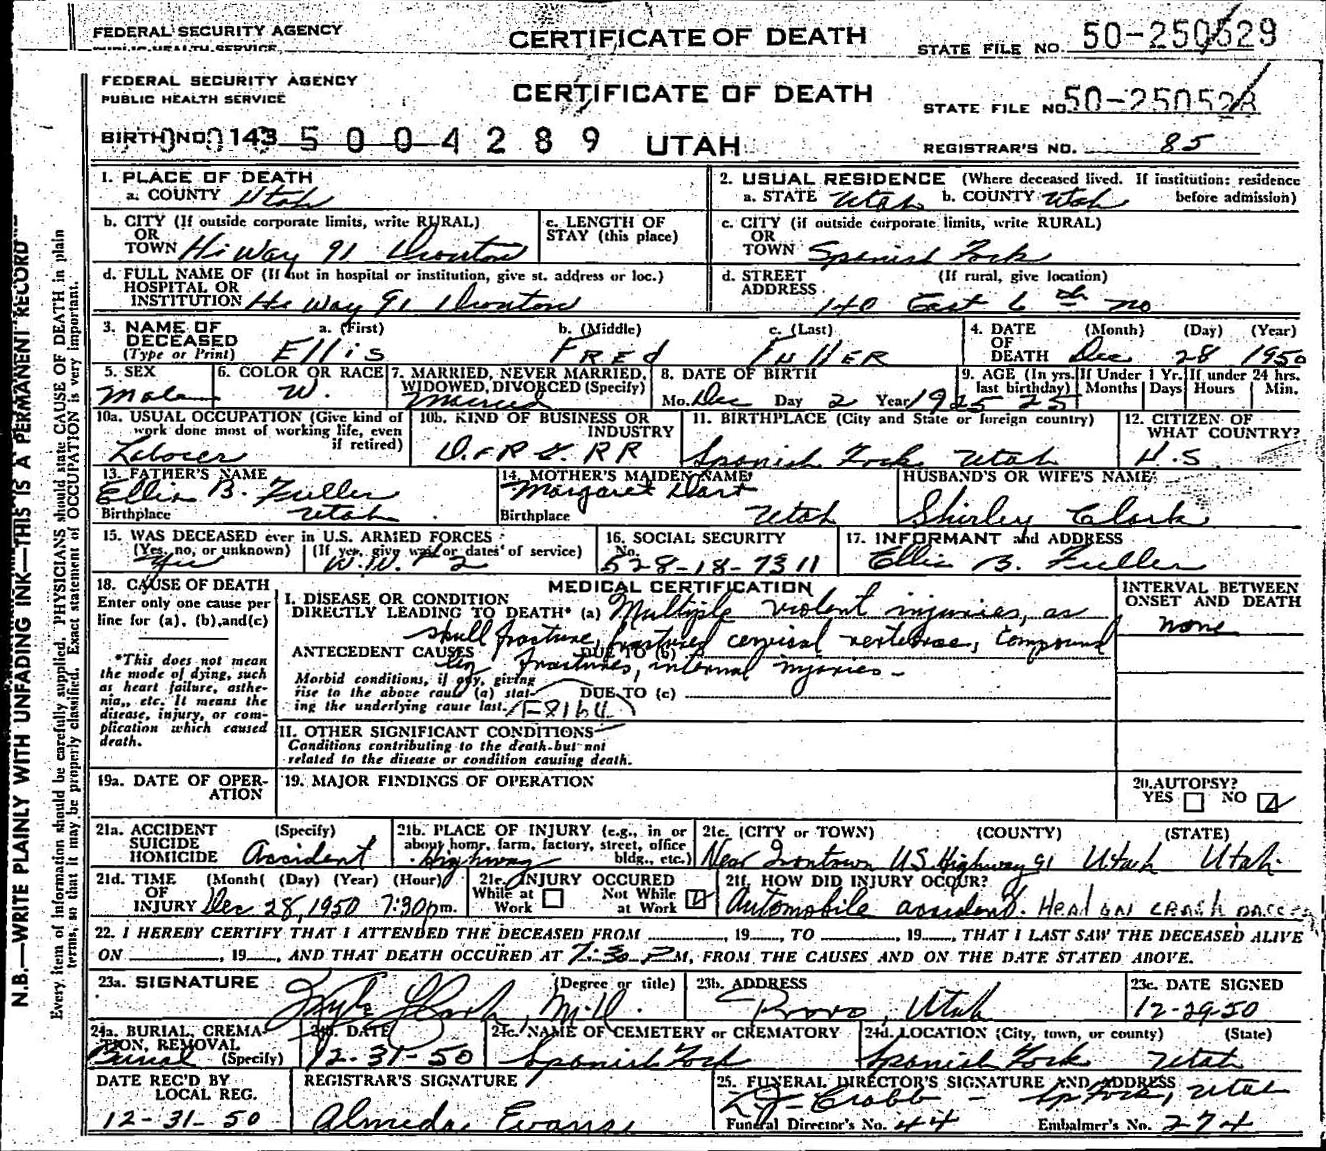 FEDERAL SECURITY AGENCY CERTIFICATE OF DEATH STATE FILE NO. 50-250529
PUBLIC HEALTH SERVICE
FEDERAL SECURITY AGENCY CERTIFICATE OF DEATH STATE FILE NO. 50-250528
PUBLIC HEALTH SERVICE
BIRTH NO. 143 5 0 0 4 2 8 9 UTAH REGISTRAR'S NO. 85
1. PLACE OF DEATH 2. USUAL RESIDENCE (Where deceased lived. If institution: residence
a. COUNTY Utah a. STATE Utah b. COUNTY Utah before admission)
b. CITY (If outside corporate limits, write RURAL) c. LENGTH OF c. CITY (if outside corporate limits, write RURAL)
OR STAY (this place) OR
TOWN Hi Way 91 Ironton TOWN Spanish Fork
d. FULL NAME OF (If not in hospital or institution, give st. address or loc.) d. STREET (If rural, give location)
HOSPITAL OR ADDRESS
INSTITUTION Hi Way 91 Ironton 140 East 6th No
3. NAME OF a. (First) b. (Middle) c. (Last) 4. DATE (Month) (Day) (Year)
DECEASED OF
(Type or Print) Ellis Fred Fuller DEATH Dec 28 1950
5. SEX 6. COLOR OR RACE 7. MARRIED, NEVER MARRIED, 8. DATE OF BIRTH 9. AGE (In yrs. If Under 1 Yr. If under 24 hrs.
WIDOWED, DIVORCED (Specify) last birthday) Months Days Hours Min.
Male W. Married Mo. Dec Day 2 Year 1925 25
10a. USUAL OCCUPATION (Give kind of 10b. KIND OF BUSINESS OR 11. BIRTHPLACE (City and State or foreign country) 12. CITIZEN OF
work done most of working life, even INDUSTRY WHAT COUNTRY?
if retired)
Laborer RR Spanish Fork Utah U.S
13. FATHER'S NAME 14. MOTHER'S MAIDEN NAME HUSBAND'S OR WIFE'S NAME
Ellis B. Fuller Margaret Dart
Birthplace Utah Birthplace Utah Shirley Clark
15. WAS DECEASED ever in U.S. ARMED FORCES 16. SOCIAL SECURITY 17. INFORMANT and ADDRESS
(Yes, no, or unknown) (If yes, give war or dates of service) No.
Yes W.W. # 2 528-18-7311 Ellis B. Fuller
18. CAUSE OF DEATH MEDICAL CERTIFICATION INTERVAL BETWEEN
Enter only one cause per I. DISEASE OR CONDITION ONSET AND DEATH
line for (a), (b), and (c) DIRECTLY LEADING TO DEATH* (a) Multiple violent injuries, as none
skull fracture, fractured cervical vertebrae, compound
ANTECEDENT CAUSES DUE TO (b)
leg fractures, internal injuries -
*This does not mean Morbid conditions, if any, giving
the mode of dying, such rise to the above cause (a) stat- DUE TO (c)
as heart failure, asthe- ing the underlying cause last. (E8164)
nia, etc. It means the
disease, injury, or com- II. OTHER SIGNIFICANT CONDITIONS
plication which caused Conditions contributing to the death but not
death. related to the disease or condition causing death.
19a. DATE OF OPER- 19. MAJOR FINDINGS OF OPERATION 20. AUTOPSY?
ATION YES NO
21a. ACCIDENT (Specify) 21b. PLACE OF INJURY (e.g., in or 21c. (CITY or TOWN) (COUNTY) (STATE)
SUICIDE about home, farm, factory, street, office
HOMICIDE Accident Highway bldg., etc.) Near Irontown U.S. Highway 91 Utah Utah.
21d. TIME (Month( (Day) (Year) (Hour) 21e. INJURY OCCURED 21f. HOW DID INJURY OCCUR?
OF While at Not While
INJURY Dec 28, 1950 7:30 pm. Work at Work Automobile accident. Head on crash
22. I HEREBY CERTIFY THAT I ATTENDED THE DECEASED FROM , 19 , TO , 19 , THAT I LAST SAW THE DECEASED ALIVE
ON , 19 , AND THAT DEATH OCCURED AT 7:30 P M, FROM THE CAUSES AND ON THE DATE STATED ABOVE.
23a. SIGNATURE (Degree or title) 23b. ADDRESS 23c. DATE SIGNED
M.D. Provo, Utah 12-29-50
24a. BURIAL, CREMA- 24b. DATE 24c. NAME OF CEMETERY or CREMATORY 24d. LOCATION (City, town, or county) (State)
TION, REMOVAL
Burial (Specify) 12-31-50 Spanish Fork Spanish Fork Utah
DATE REC'D BY REGISTRAR'S SIGNATURE 25. FUNERAL DIRECTOR'S SIGNATURE AND ADDRESS
LOCAL REG. Crabb - Sp Fork, Utah
12-31-50 Almeda Evans Funeral Director's No. 44 Embalmer's No. 274
N.B.—WRITE PLAINLY WITH UNFADING INK—THIS IS A PERMANENT RECORD
Every item of information should be carefully supplied. PHYSICIANS should state CAUSE OF DEATH in plain
terms, so that it may be properly classified. Exact statement of OCCUPATION is very important.